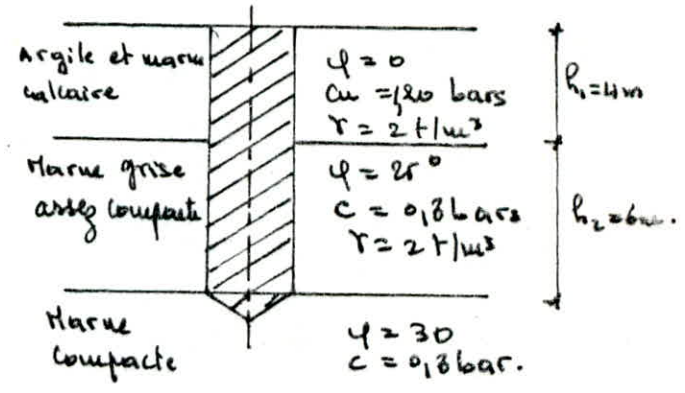 Argile et marne
calcaire
φ = 0
Cu = 1,20 bars
γ = 2 t/m³
h₁ = 4m
Marne grise
assez compacte
φ = 25°
C = 0,8 bars
γ = 2 t/m³
h₂ = 6m.
Marne
compacte
φ = 30
C = 0,8 bar.